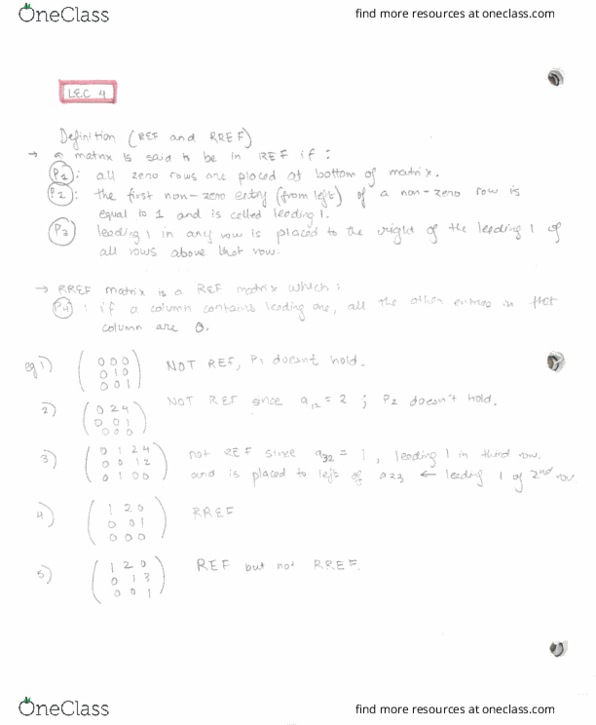 OneClass
find more resources at oneclass.com
LEC 4
Definition (REF and RREF)
→ a matrix is said to be in REF if :
P1 : all zero rows are placed at bottom of matrix.
P2 : the first non-zero entry (from left) of a non-zero row is
equal to 1 and is called leading 1.
P3 leading 1 in any row is placed to the right of the leading 1 of
all rows above that row.
→ RREF matrix is a REF matrix which :
P4 : if a column contains leading one, all the other entries in that
column are 0.
eg 1) ( 0 0 0 NOT REF, P1 doesn't hold.
0 1 0
0 0 1 )
2) ( 0 2 4 NOT REF since a12 = 2 ; P2 doesn't hold.
0 0 1
0 0 0 )
3) ( 0 1 2 4 not REF since a32 = 1 , leading 1 in third row.
0 0 1 2 and is placed to left of a23 ← leading 1 of 2nd row
0 1 0 0 )
4) ( 1 2 0 RREF
0 0 1
0 0 0 )
5) ( 1 2 0 REF but not RREF.
0 1 3
0 0 1 )
OneClass
find more resources at oneclass.com